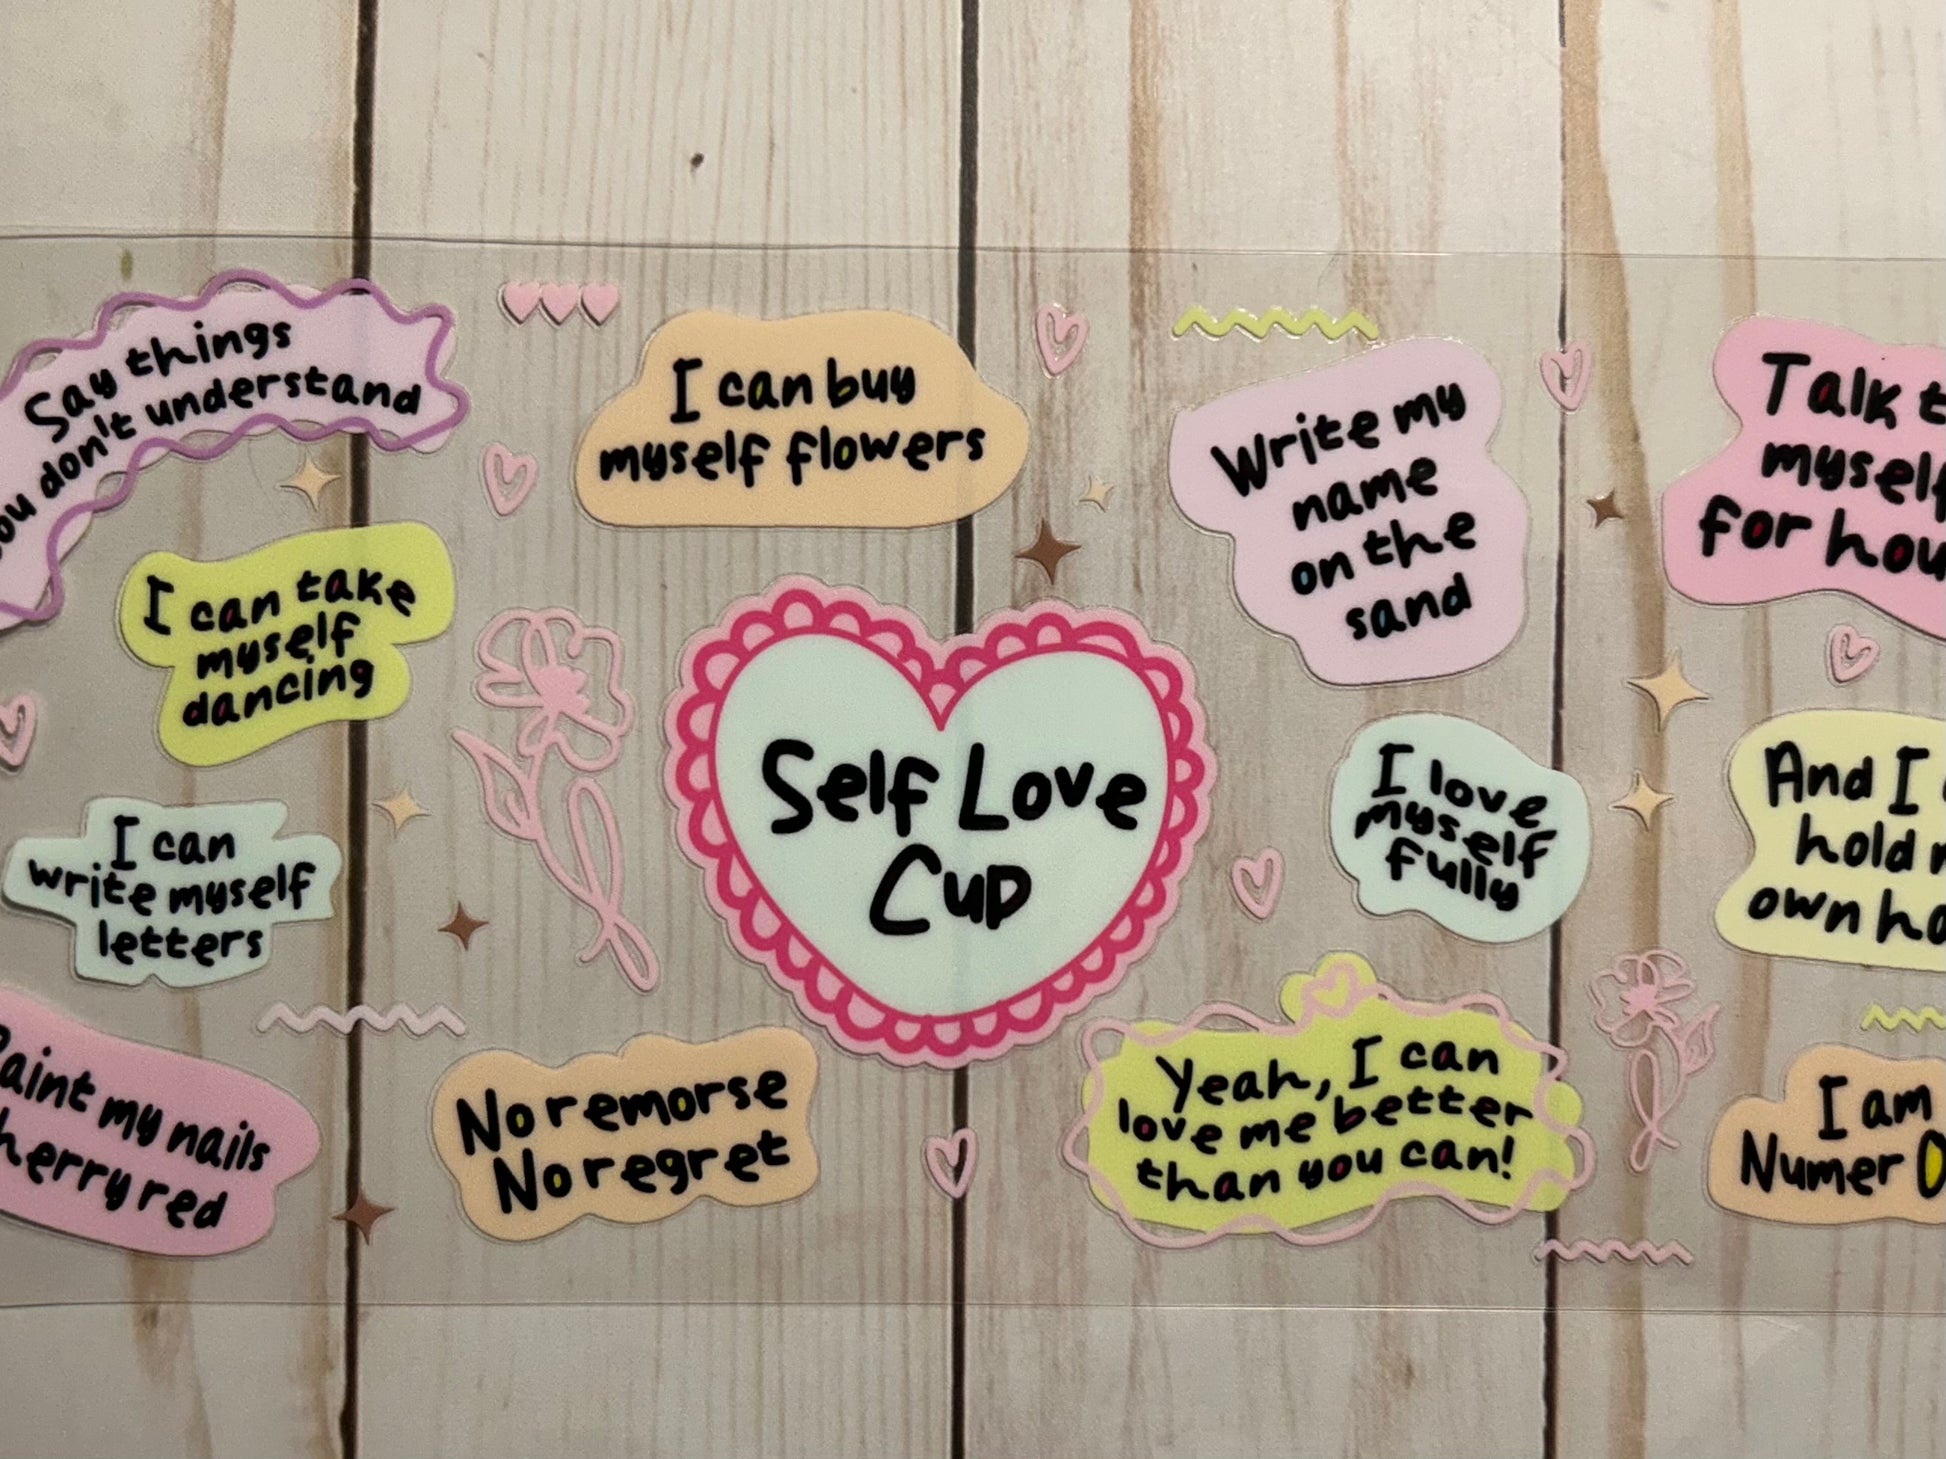 Say things
you don't understand
I can buy
myself flowers
Write my
name
on the
sand
Talk t
myself
for hou
I can take
myself
dancing
Self Love
Cup
I love
myself
fully
And I
hold
own ha
I can
write myself
letters
Paint my nails
herry red
No remorse
No regret
Yeah, I can
love me better
than you can!
I am
Numer O